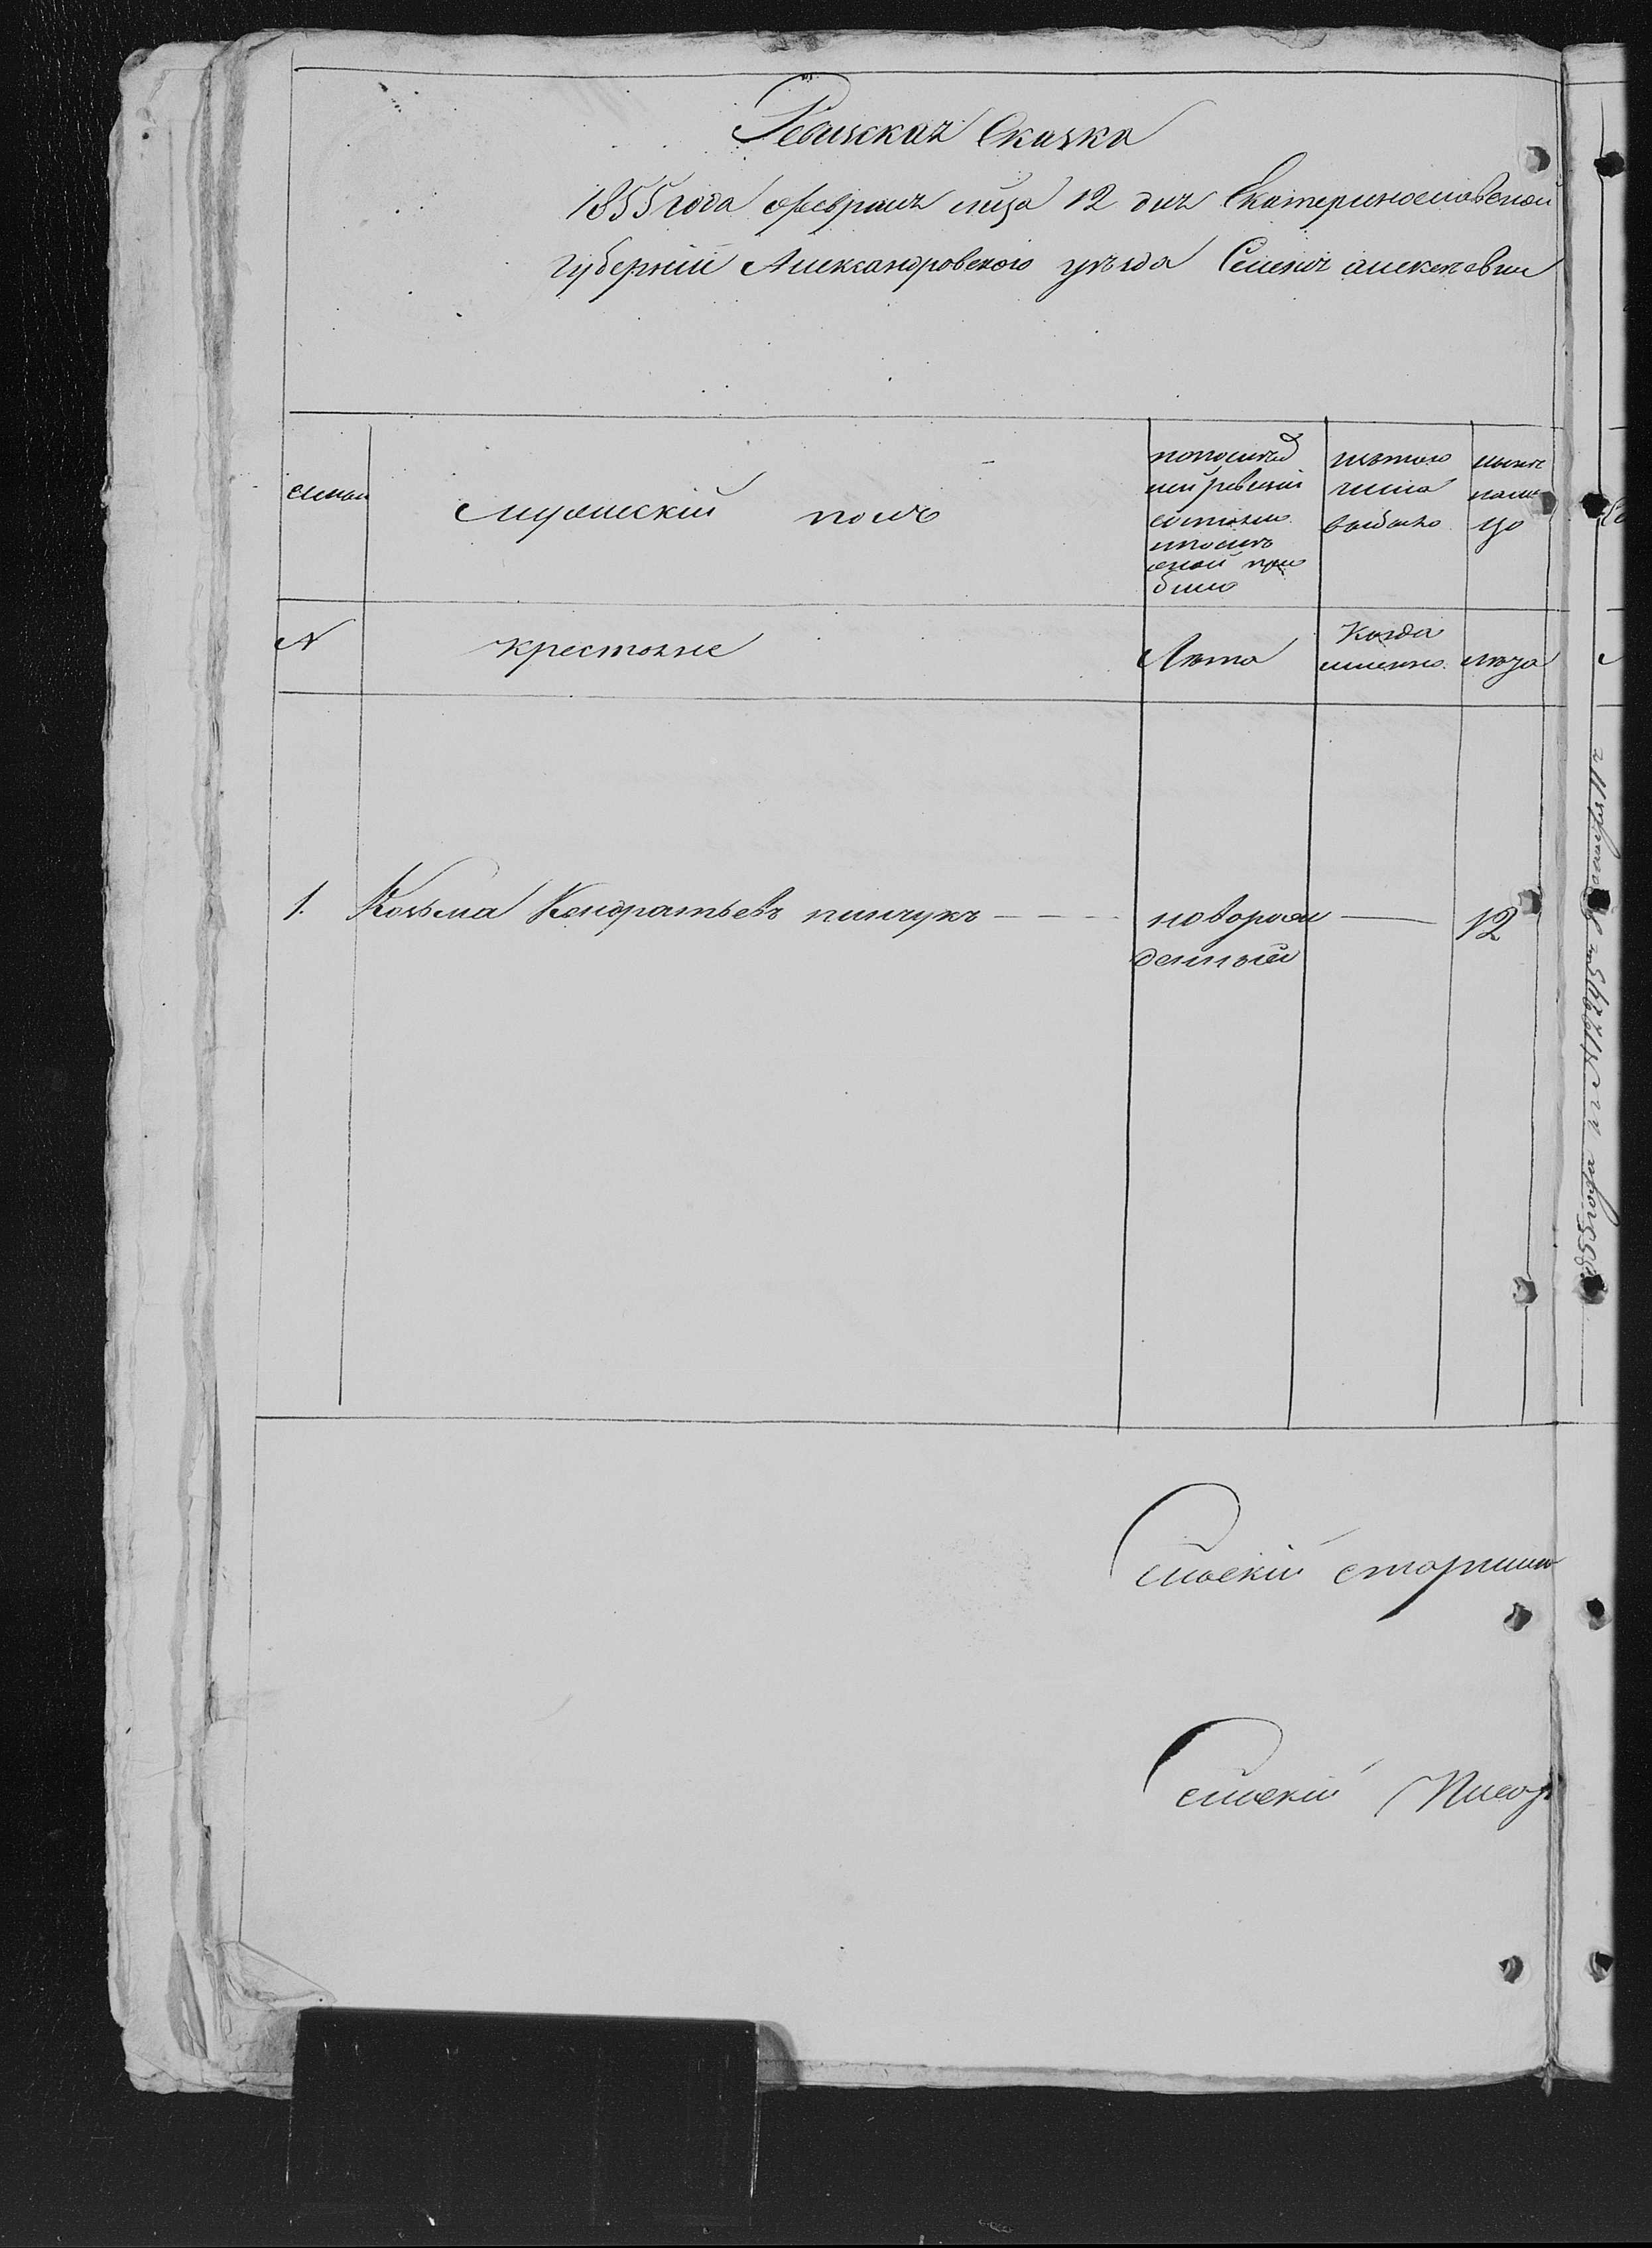 Ревизская Сказка
1855 года февраля мца 12 дня Екатеринославской
губерніи Александровского уезда Селенія алексеевки
семьи
Мужескій полъ
попослед
ней ревизіи
состояло
ипосле
оной при
было
изтого
числа
выбыло
ныне
налиц
цо
N
крестьяне
Лета
Когда
именно
лета
1. Козьма Кондратьевъ пинчукъ — — — новорож — 12
денный
Сельскій старшина
Сельскій Писарь